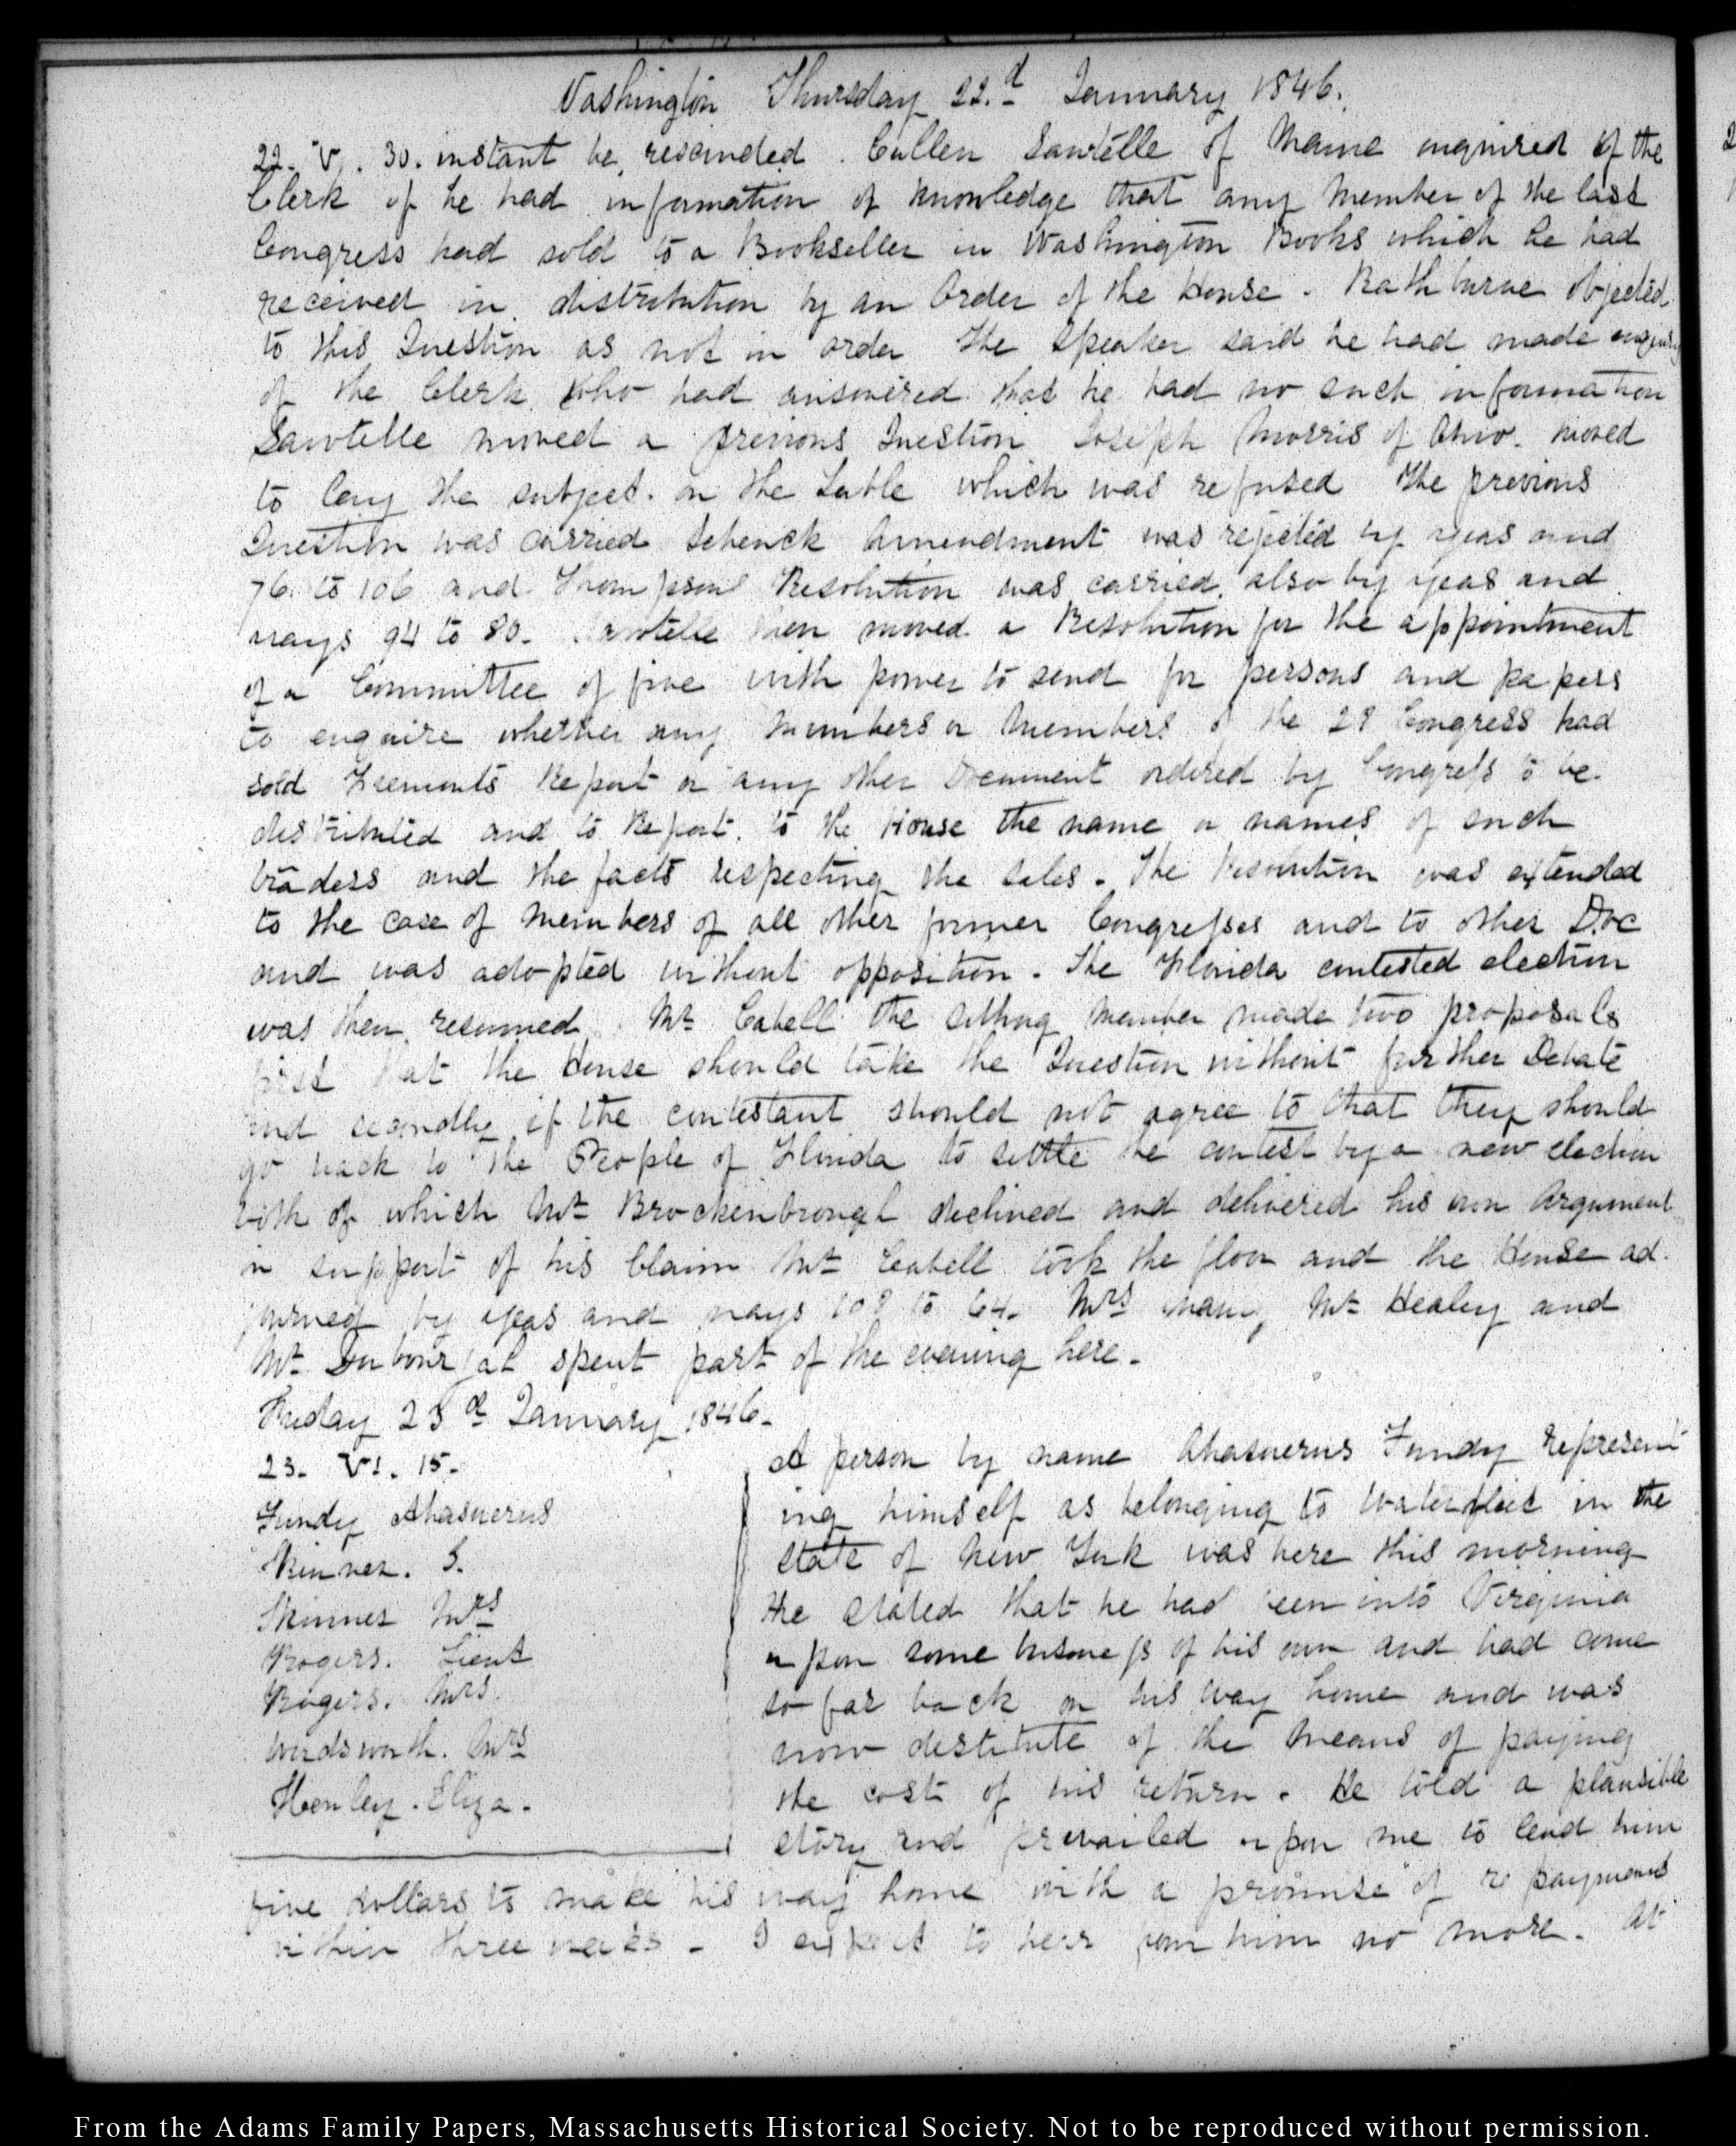 Washington Thursday 22.d January 1846.
22. V. 30. instant be rescinded. Cullen Sawtelle of Maine enquired of the
Clerk if he had information of knowledge that any Member of the last
Congress had sold to a Bookseller in Washington Books which he had
received in distribution by an Order of the House. Rathburne objected
to this Question as not in order the Speaker said he had made enquiry
of the Clerk who had answered that he had no such information
Sawtelle moved a previous Question Joseph Morris of Ohio. moved
to lay the subject. on the Table which was refused the previous
Question was carried Schenck Amendment was rejected by yeas and
76. to 106 and Thompsons Resolution was carried also by yeas and
nays 94 to 80. Sawtelle then moved a Resolution for the appointment
of a Committee of five with power to send for persons and papers
to enquire whether any Members or Members of the 28 Congress had
sold Fremonts Report or any other Document ordered by Congress to be
distributed and to Report. to the House the name or names of such
traders and the facts respecting the sales. The Resolution was extended
to the case of Members of all other former Congresses and to other Doc
and was adopted without opposition. The Florida contested election
was then resumed Mr Cabell the sitting Member made two proposals
first that the House should take the Question without further Debate
and secondly if the contestant should not agree to that they should
go back to the People of Florida to settle the contest by a new election
both of which Mr Brockenbrough declined and delivered his own Argument
in support of his Claim Mr Cabell took the floor and the House ad.
journed by yeas and nays 108 to 64. Mrs Mr Healey and
Mr spent part of the evening here.
Friday 23d January 1846.
23. VI. 15.
Fundy Ahasuerus
Skinner. S.
Skinner Mrs
Rogers. Lieut
Rogers. Mrs.
Wordsworth. Mrs
Henley. Eliza.
A person by name Ahasuerus Fundy represent
ing himself as belonging to Watervliet in the
State of New York was here this morning
He stated that he had been into Virginia
upon some business of his own and had come
so far back on his way home and was
now destitute of the means of paying
the cost of his return. He told a plausible
story and prevailed upon me to lend him
five dollars to make his way home with a promise of repayment
within three weeks. I expect to hear from him no more. At
From the Adams Family Papers, Massachusetts Historical Society. Not to be reproduced without permission.